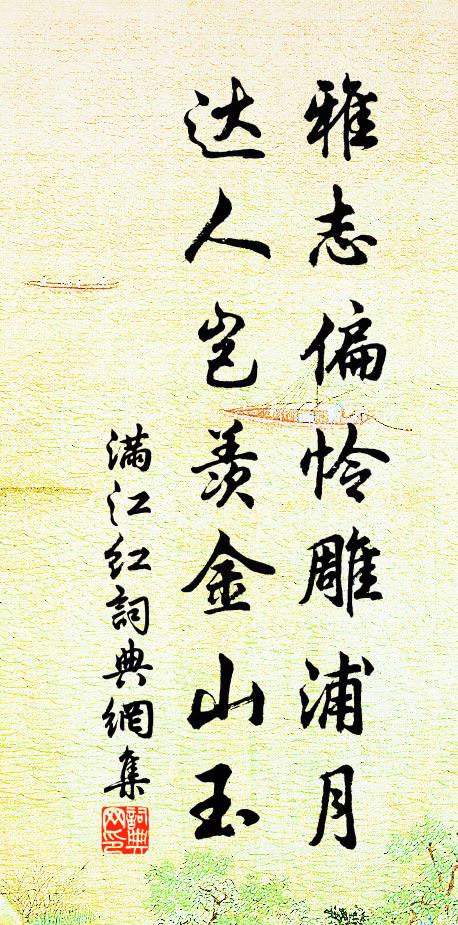 雅志偏怜雕浦月
达人岂羡金山玉
满江红詞典網集
詞典网印